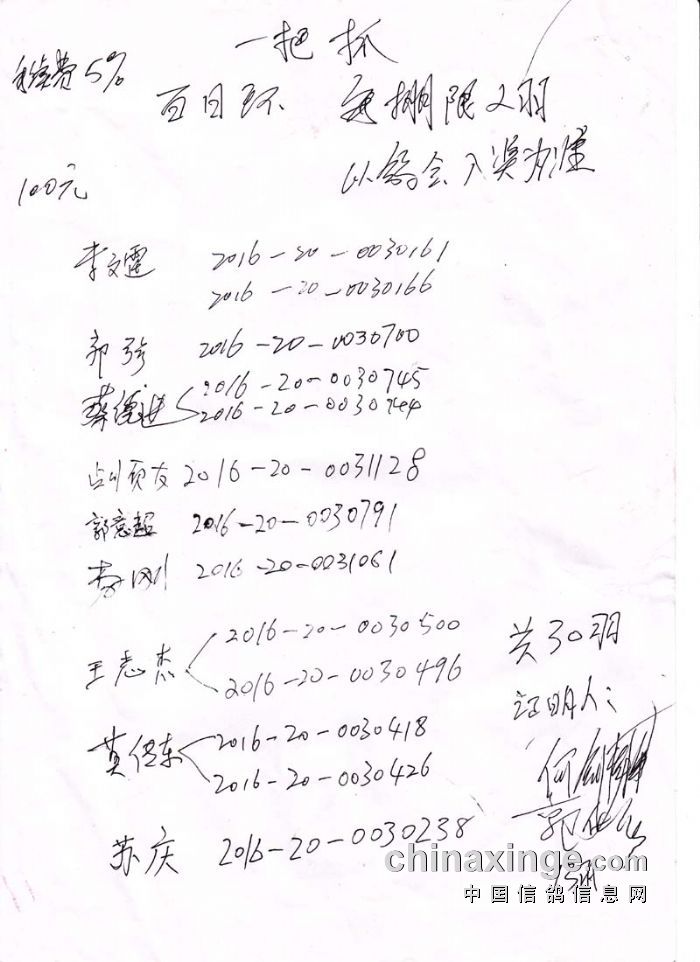 一把抓
手续费5%
百日环 每棚限2羽
以鸽会入奖为准
100元
李文霆 2016-20-0030161
2016-20-0030166
郭珍 2016-20-0030700
蔡德进 2016-20-0030745
2016-20-0030744
2016-20-0031128
郭意超 2016-20-0030791
李刚 2016-20-0031061
王志杰 2016-20-0030500
2016-20-0030496
共30羽
证明人:
莫伟东 2016-20-0030418
2016-20-0030426
苏庆 2016-20-0030238
chinaxinge.com
中国信鸽信息网